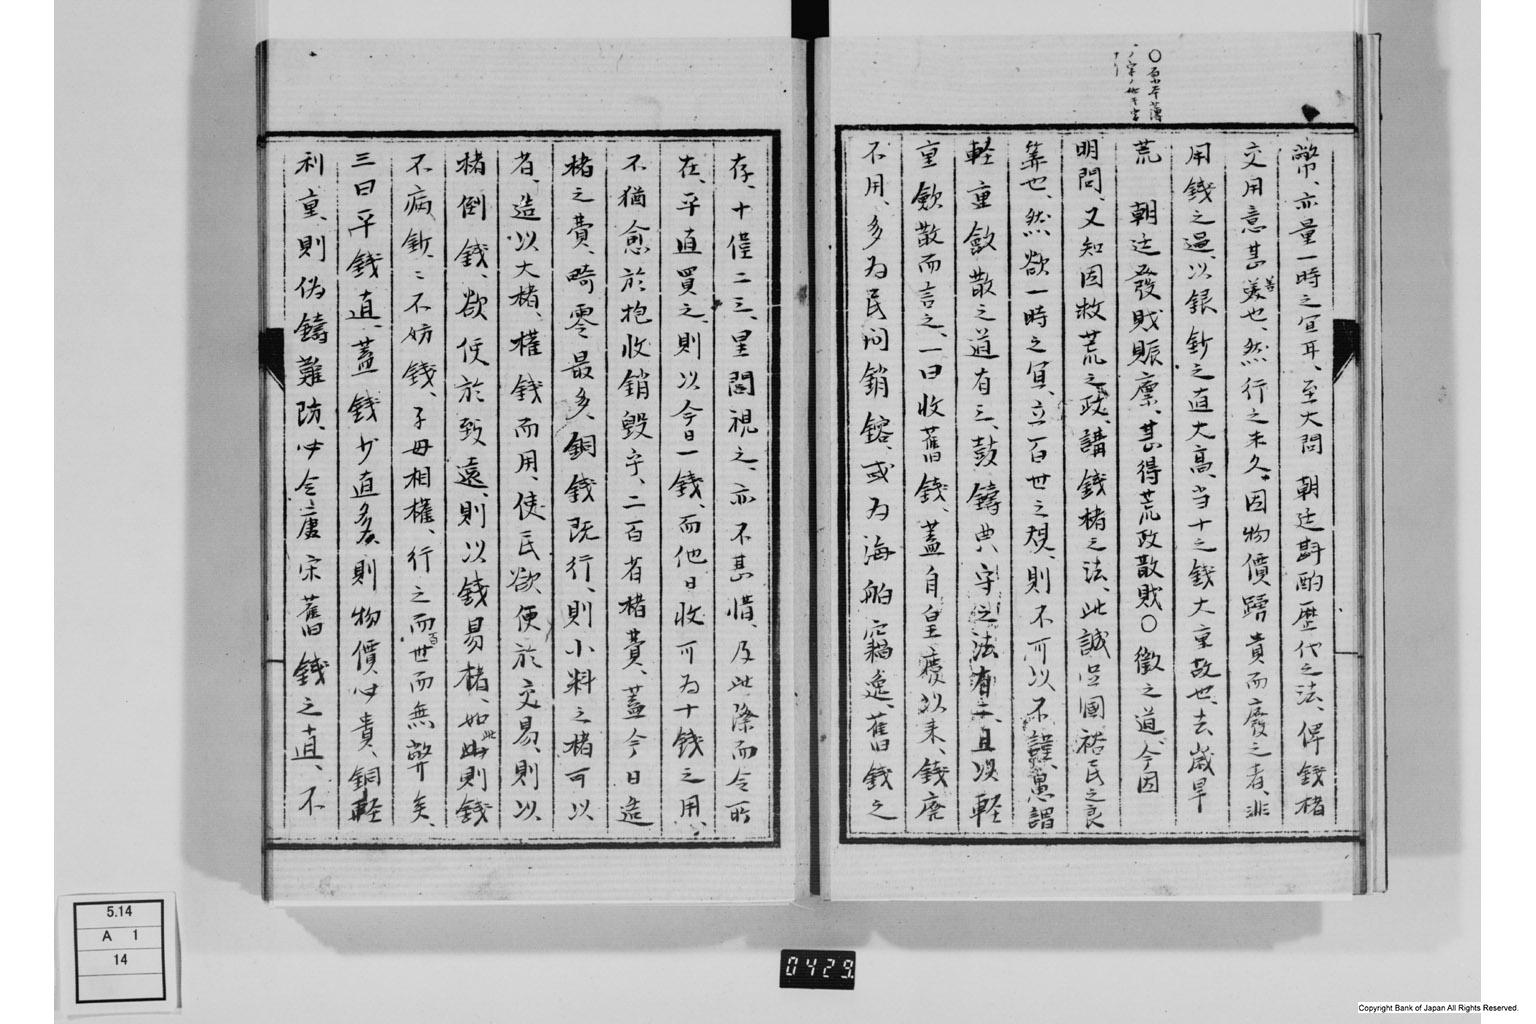 幣、亦量一時之宜耳、至大間　朝廷斟酌歴代之法、俾錢楮
交用意甚善美也、然行之未久、因物價踴貴而廢之者、非
用錢之過、以銀鈔之直大高、当十之錢大重故也、去歳旱
荒　朝廷發賎賑廩、甚得荒政散賎〇徴之道、今因
明問、又知因救荒之政、講錢楮之法、此誠足國裕民之良
筭也、然欲一時之宜、立百世之規、則不可以不謹、愚謂
軽重斂散之道有三、鼓鑄典守之法有二、且以軽
重斂散而言之、一曰收舊錢、蓋自皇慶以来、錢廃
不用、多為民间銷鎔、或為海舶竊逸、舊錢之
存、十僅二三、里閭視之、亦不甚惜、及此際而令所
在、平直買之、則以今日一錢、而他日收可為十錢之用、
不猶愈於抱收銷毀乎、二百省楮費、蓋今日造
楮之費、畸零最多、銅錢既行、則小料之楮可以
省、造以大楮、權錢而用、使民欲便於交易、則以
楮倒錢、欲便於致遠、則以錢易楮、如此則錢
不病鈔、ミ不妨錢、子母相權、行之而百世而無弊矣、
三曰平錢直、蓋錢少直多、則物價必貴、銅軽
利重、則偽鑄難防、必令唐宋舊錢之直、不
5.14
A 1
14
0429
Copyright Bank of Japan All Rights Reserved.